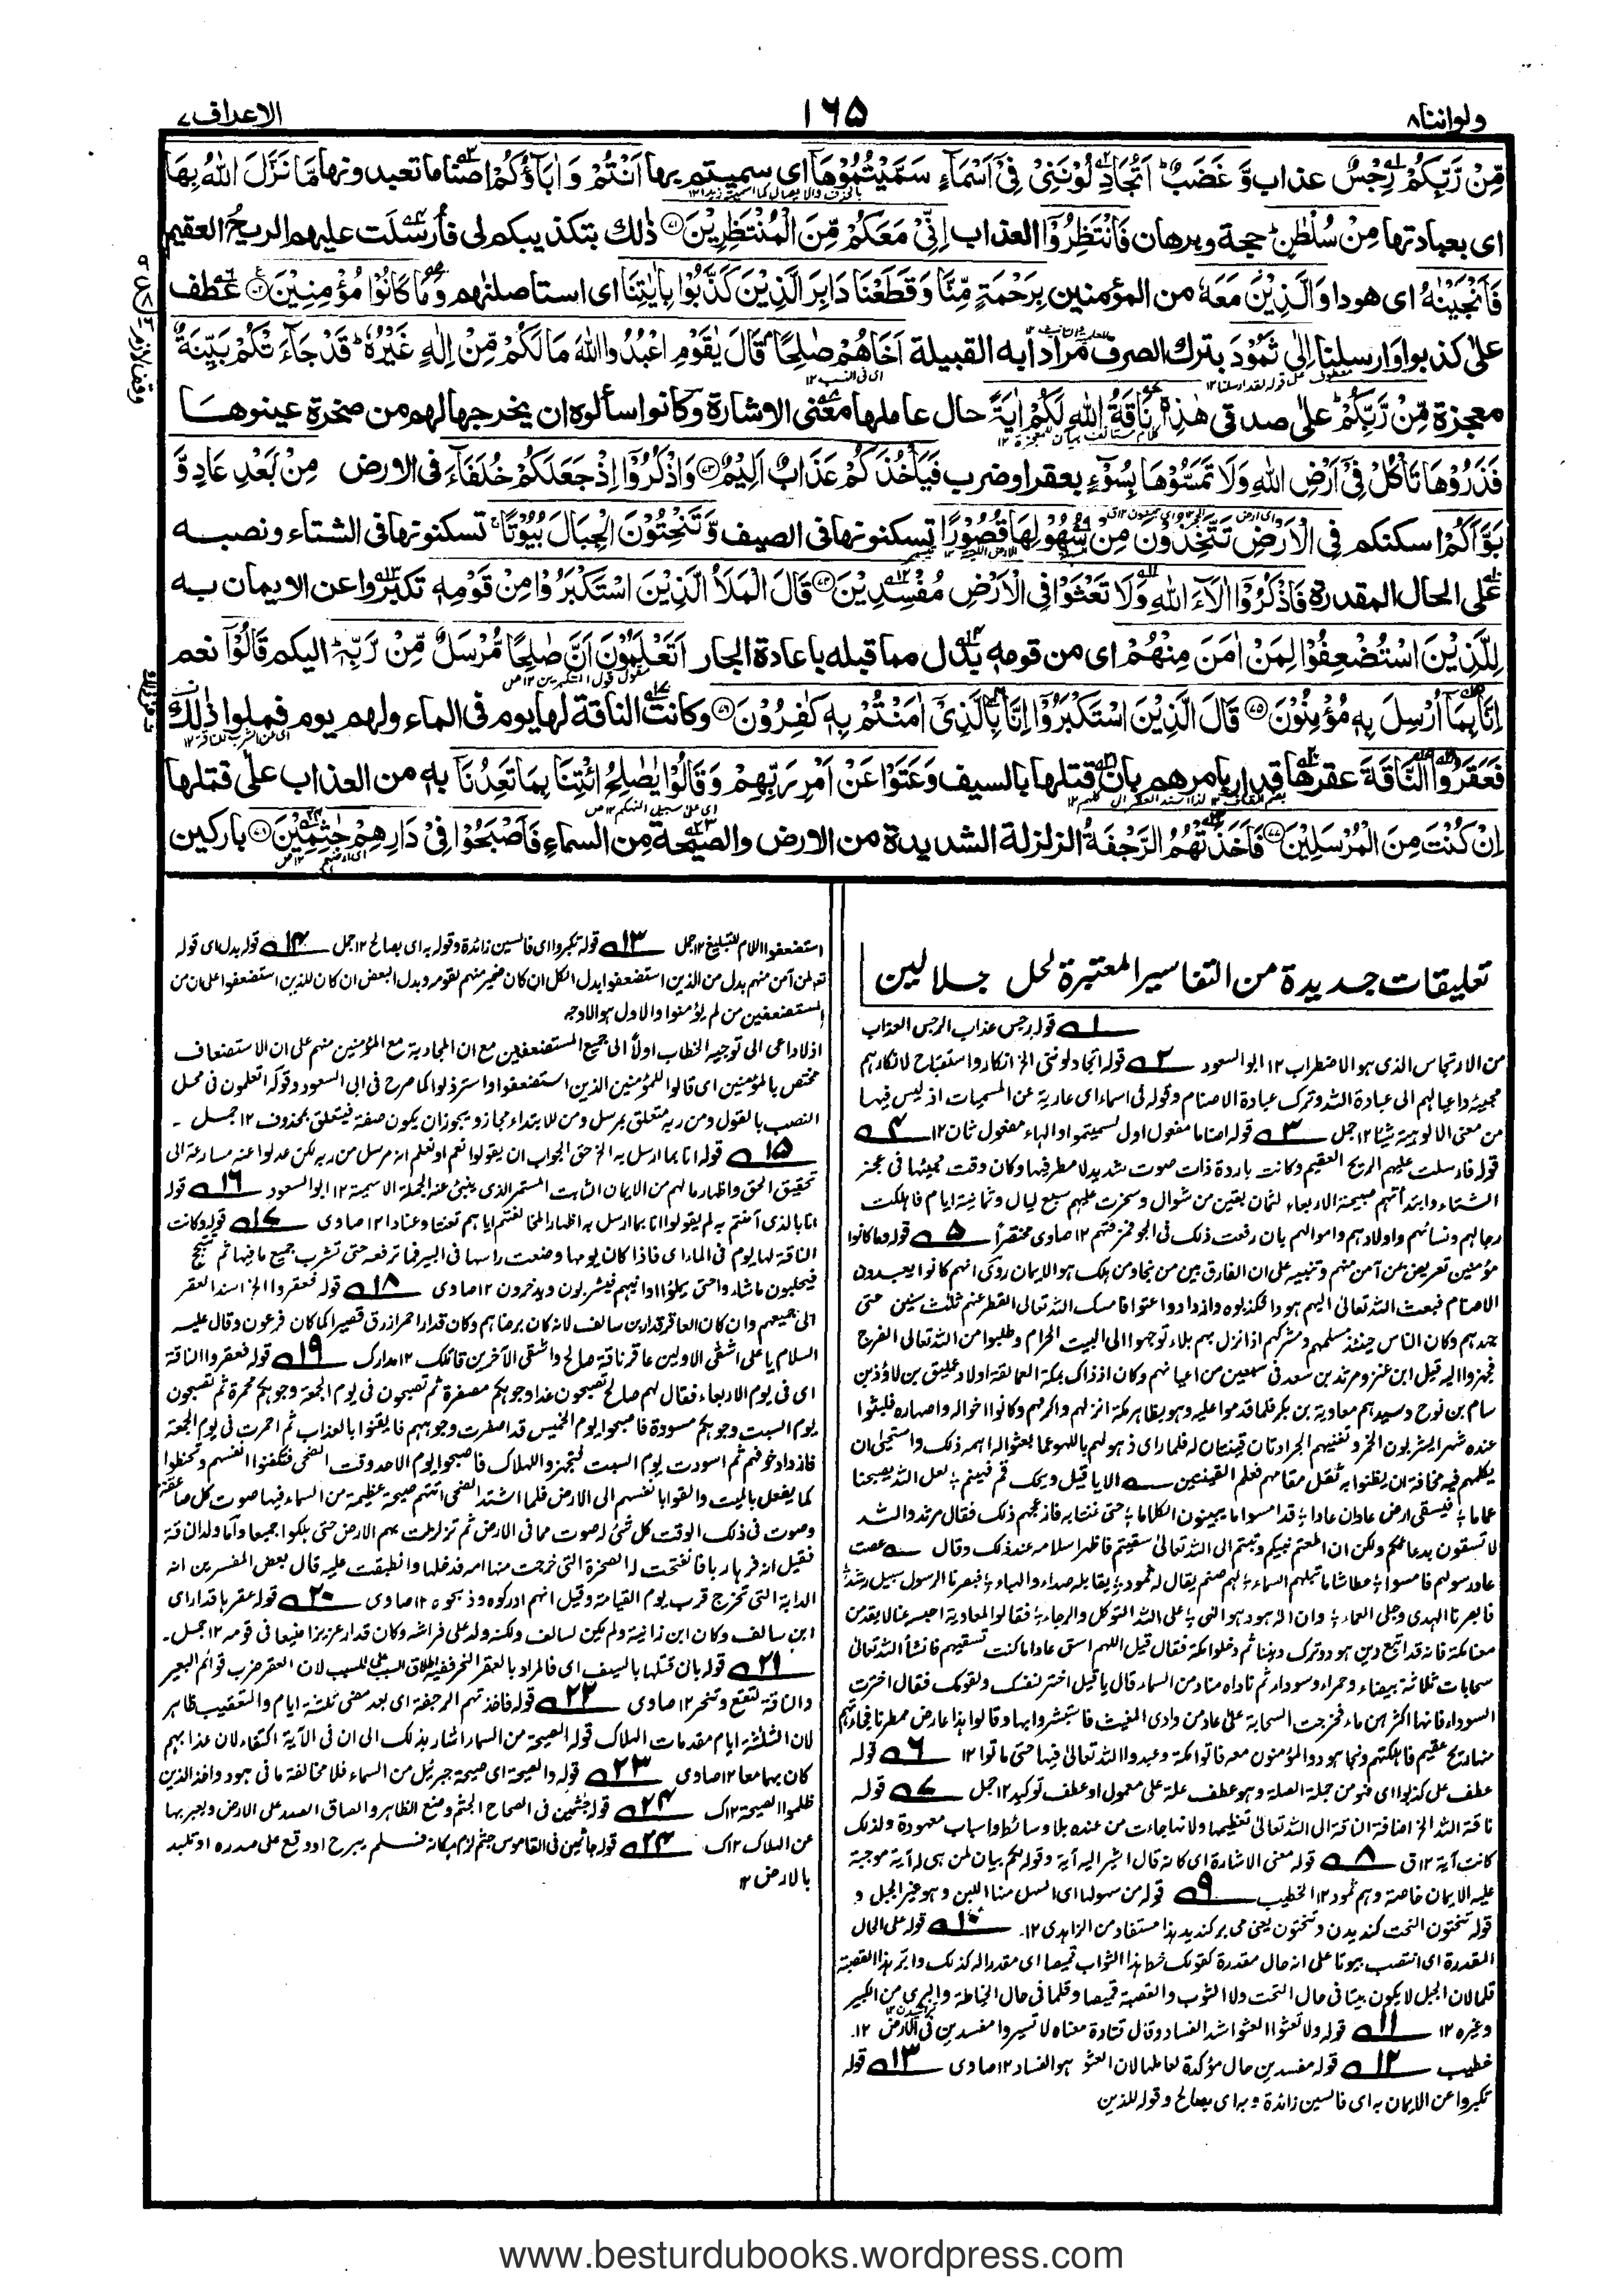 ولواننا۸
۱۶۵
الاعراف۷
مِّنْ رَّبِّكُمْ رِجْسٌ عذاب وَّ غَضَبٌ ؕ اَتُجَادِلُوْنَنِىْ فِىْۤ اَسْمَآءٍ سَمَّيْتُمُوْهَاۤ اى سميتم بها اَنْتُمْ وَ اٰبَآؤُكُمْ اصناما تعبدونها مَّا نَزَّلَ اللّٰهُ بِهَا
اى بعبادتها مِنْ سُلْطٰنٍ ؕ حجة وبرهان فَانْتَظِرُوْۤا العذاب اِنِّىْ مَعَكُمْ مِّنَ الْمُنْتَظِرِيْنَ ۷۱ ذٰلك بتكذيبكم لى فأرسلت عليهم الريحُ العقيم
فَاَنْجَيْنٰهُ اى هودا وَالَّذِيْنَ مَعَهٗ من المؤمنين بِرَحْمَةٍ مِّنَّا وَقَطَعْنَا دَابِرَ الَّذِيْنَ كَذَّبُوْا بِاٰيٰتِنَا اى استاصلنٰهم وَمَا كَانُوْا مُؤْمِنِيْنَ ۷۲ عطف
على كذبوا وَارسلنا اِلٰى ثَمُوْدَ بترك الصرف مرادا به القبيلة اَخَاهُمْ صٰلِحًا ۘ قَالَ يٰقَوْمِ اعْبُدُوا اللّٰهَ مَا لَكُمْ مِّنْ اِلٰهٍ غَيْرُهٗ ؕ قَدْ جَآءَتْكُمْ بَيِّنَةٌ
معجزة مِّنْ رَّبِّكُمْ ؕ علىٰ صدقى هٰذِهٖ نَاقَةُ اللّٰهِ لَكُمْ اٰيَةً حال عاملها معنى الاشارة وكانوا سألوه ان يخرجها لهم من صخرة عينوها
فَذَرُوْهَا تَاْكُلْ فِىْۤ اَرْضِ اللّٰهِ وَلَا تَمَسُّوْهَا بِسُوْٓءٍ بعقر او ضرب فَيَاْخُذَكُمْ عَذَابٌ اَلِيْمٌ ۷۳ وَاذْكُرُوْۤا اِذْ جَعَلَكُمْ خُلَفَآءَ فى الارض مِنْۢ بَعْدِ عَادٍ وَّ
بَوَّاَكُمْ اسكنكم فِى الْاَرْضِ تَتَّخِذُوْنَ مِنْ سُهُوْلِهَا قُصُوْرًا تسكنونها فى الصيف وَّ تَنْحِتُوْنَ الْجِبَالَ بُيُوْتًا ۚ تسكنونها فى الشتاء ونصبه
على الحال المقدرة فَاذْكُرُوْۤا اٰلَآءَ اللّٰهِ وَلَا تَعْثَوْا فِى الْاَرْضِ مُفْسِدِيْنَ ۷۴ قَالَ الْمَلَاُ الَّذِيْنَ اسْتَكْبَرُوْا مِنْ قَوْمِهٖ تكبروا عن الايمان به
لِلَّذِيْنَ اسْتُضْعِفُوْا لِمَنْ اٰمَنَ مِنْهُمْ اى من قومه بدل مما قبله باعادة الجار اَتَعْلَمُوْنَ اَنَّ صٰلِحًا مُّرْسَلٌ مِّنْ رَّبِّهٖ ؕ اليكم قَالُوْۤا نعم
اِنَّا بِمَاۤ اُرْسِلَ بِهٖ مُؤْمِنُوْنَ ۷۵ قَالَ الَّذِيْنَ اسْتَكْبَرُوْۤا اِنَّا بِالَّذِىْۤ اٰمَنْتُمْ بِهٖ كٰفِرُوْنَ ۷۶ وكانت الناقة لها يوم فى الماء ولهم يوم فملوا ذٰلك
فَعَقَرُوا النَّاقَةَ عقرها قدار بامرهم بان قتلها بالسيف وَعَتَوْا عَنْ اَمْرِ رَبِّهِمْ وَقَالُوْا يٰصٰلِحُ ائْتِنَا بِمَا تَعِدُنَاۤ به من العذاب على قتلها
اِنْ كُنْتَ مِنَ الْمُرْسَلِيْنَ ۷۷ فَاَخَذَتْهُمُ الرَّجْفَةُ الزلزلة الشديدة من الارض والصيحة من السماء فَاَصْبَحُوْا فِىْ دَارِهِمْ جٰثِمِيْنَ ۷۸ باركين
تعليقات جديدة من التفاسير المعتبرة لحل جلالين
۱ قوله رجس عذاب الرجس العذاب
من الارتجاس الذى هو الاضطراب ۱۲ ابو السعود ۲ قوله اتجادلوننى الخ انكار واستقباح لانكارهم
مجيئه داعيا لهم الى عبادة الله وترك عبادة الاصنام وقوله فى اسماء اى عارية عن المسميات اذ ليس فيها
من معنى الالوهية شيئا ۱۲ جمل ۳ قوله اصناما مفعول اول لسميتموا والهاء مفعول ثان ۱۲ ۴
قوله فارسلت عليهم الريح العقيم وكانت باردة ذات صوت شديد لا مطر فيها وكان وقت مجيئها فى عجز
الشتاء وابتدأتهم صبيحة الاربعاء لثمان بقين من شوال وسخرت عليهم سبع ليال وثمانية ايام فاهلكت
رجالهم ونسائهم واولادهم واموالهم بان رفعت ذلك فى الجو فمزقتهم ۱۲ صاوى مختصراً ۵ قوله وما كانوا
مؤمنين تعريض بمن آمن منهم وتنبيه على ان الفارق بين من نجا ومن هلك هو الايمان روى انهم كانوا يعبدون
الاصنام فبعث الله تعالى اليهم هودا فكذبوه وازدادوا عتوا فامسك الله تعالى القطر عنهم ثلث سنين حتى
جهدهم وكان الناس حينئذ مسلمهم ومشركهم اذا نزل بهم بلاء توجهوا الى البيت الحرام وطلبوا من الله تعالى الفرج
فجهزوا اليه قيل ابن عنز ومرثد بن سعد فى سبعين من اعيانهم وكان اذ ذاك بمكة العمالقة اولاد عمليق بن لاوذ بن
سام بن نوح وسيدهم معاوية بن بكر فلما قدموا عليه وهو بظاهر مكة انزلهم واكرمهم وكانوا اخواله واصهاره فلبثوا
عنده شهرا يشربون الخمر وتغنيهم الجرادتان قينتان له فلما راى ذهولهم باللهو عما بعثوا له اهمه ذلك واستحيى ان
يكلمهم فيه مخافة ان يظنوا به ثقل مقامهم فعلم القينتين الا يا قيل ويحك قم فهينم ؛ لعل الله يصبحنا
غماما ؛ فيسقى ارض عاد ان عادا ؛ قد امسوا ما يبينون الكلاما ؛ حتى غنتا به فازعجهم ذلك فقال مرثد والله
لا تسقون بدعائكم ولكن ان اطعتم نبيكم وتبتم الى الله تعالى سقيتم فاظهر اسلامه عند ذلك وقال عصت
عاد رسولهم فامسوا ؛ عطاشا ما تبلهم السماء ؛ لهم صنم يقال له ثمود ؛ يقابله صداء والهباء ؛ فبصرنا الرسول سبيل رشد ؛
فابصرنا الهدى وجلى العماء ؛ وان اله هود هو الهى ؛ على الله التوكل والرجاء ؛ فقالوا لمعاوية احبسه عنا لا يقدمن
معنا مكة فانه قد اتبع دين هود وترك ديننا ثم دخلوا مكة فقال قيل اللهم اسق عادا ما كنت تسقيهم فانشأ الله تعالى
سحابات ثلاثة بيضاء وحمراء وسوداء ثم ناداه مناد من السماء قال يا قيل اختر لنفسك ولقومك فقال اخترت
السوداء فانها اكثرهن ماء فخرجت السحابة على عاد من وادى المغيث فاستبشروا بها وقالوا هذا عارض ممطرنا فجاءتهم
منها ريح عقيم فاهلكتهم ونجا هود والمؤمنون معه فاتوا مكة وعبدوا الله تعالى فيها حتى ماتوا ۱۲ ۶ قوله
عطف على كذبوا اى فهو من جملة الصلة وهو عطف علة على معمول او عطف توكيد ۱۲ جمل ۷ قوله
ناقة الله الخ اضافة الناقة الى الله تعالى تعظيمها ولانها جاءت من عنده بلا وسائط واسباب معهودة ولذلك
كانت آية ۱۲ ق ۸ قوله معنى الاشارة اى كانه قال اشير اليه آية وقوله لكم بيان لمن هى له آية موجبة
عليه الايمان خاصة وهم ثمود ۱۲ الخطيب ۹ قوله من سهولها اى السهل منها اللبن وهو غير الجبل و
قوله تنحتون النحت كنديدن وتنحتون يعنى مى بركنديد هذا مستفاد من الزاهدى ۱۲. ۱۰ قوله على الحال
المقدرة اى انتصب بيوتا على انه حال مقدرة كقولك خط هذا الثواب قميصا اى مقدرا له كذلك وابر هذا القصبة
قلما لان الجبل لا يكون بيتا فى حال النحت ولا الثوب والقصبة قميصا وقلما فى حال الخياطة والبرى من الكبير
وغيره ۱۲ ۱۱ قوله ولا تعثوا العثو اشد الفساد وقال قتادة معناه لا تسيروا مفسدين فى الارض ۱۲.
خطيب ۱۲ قوله مفسدين حال مؤكدة لعاملها لان العثو هو الفساد ۱۲ صاوى ۱۳ قوله
تكبروا عن الايمان به اى فالسين زائدة وبه اى بصالح وقوله للذين
استضعفوا اللام للتبليغ ۱۲ جمل ۱۳ قوله تكبروا اى فالسين زائدة وقوله به اى بصالح ۱۲ جمل ۱۴ قوله بدل اى قوله
تعه لمن آمن منهم بدل من الذين استضعفوا بدل الكل ان كان ضمير منهم لقومه وبدل البعض ان كان للذين استضعفوا على ان من
المستضعفين من لم يؤمنوا والاول هو الاوجه
اذ لا داعى الى توجيه الخطاب اولاً الى جميع المستضعفين مع ان المجاوبة مع المؤمنين منهم على ان الاستضعاف
مختص بالمؤمنين اى قالوا للمؤمنين الذين استضعفوا واسترذلوا كما صرح فى ابى السعود وقوله اتعلمون فى محل
النصب بالقول ومن ربه متعلق بمرسل ومن للابتداء مجازو يجوز ان يكون صفة فيتعلق بمحذوف ۱۲ جمل ۔
۱۵ قوله انا بما ارسل به الخ حق الجواب ان يقولوا نعم او نعلم انه مرسل من ربه لكن عدلوا عنه مسارعة الى
تحقيق الحق واظهار ما لهم من الايمان الثابت المستمر الذى ينبئ عنه الجملة الاسمية ۱۲ ابو السعود ۱۶ قوله
انا بالذى آمنتم به لم يقولوا انا بما ارسل به اظهارا لمخالفتهم اياهم تعنتا وعنادا ۱۲ صاوى ۱۷ قوله وكانت
الناقة لها يوم فى الماء اى فاذا كان يومها وضعت راسها فى البير فما ترفعه حتى تشرب جميع ما فيها ثم تتفحج
فيحلبون ما شاءوا حتى يملؤا اوانيهم فيشربون ويدخرون ۱۲ صاوى ۱۸ قوله فعقروا الخ اسند العقر
الى جميعهم وان كان العاقر قدار بن سالف لانه كان برضاهم وكان قدار احمر ازرق قصيرا كما كان فرعون وقال عليه
السلام يا على اشقى الاولين عاقر ناقة صالح واشقى الآخرين قاتلك ۱۲ مدارك ۱۹ قوله فعقروا الناقة
اى فى يوم الاربعاء فقال لهم صالح تصبحون غدا وجوهكم مصفرة ثم تصبحون فى يوم الجمعة وجوهكم محمرة ثم تصبحون
يوم السبت وجوهكم مسودة فاصبحوا يوم الخميس قد اصفرت وجوههم فايقنوا بالعذاب ثم احمرت فى يوم الجمعة
فازداد خوفهم ثم اسودت يوم السبت فتجهزوا للهلاك فاصبحوا يوم الاحد وقت الضحى فتكفنوا انفسهم وتحنطوا
كما يفعل بالميت والقوا بانفسهم الى الارض فلما اشتد الضحى اتتهم صيحة عظيمة من السماء فيها صوت كل صاعقة
وصوت فى ذلك الوقت كل شئ له صوت مما فى الارض ثم تزلزلت بهم الارض حتى هلكوا جميعا وأما ولد الناقة
فقيل انه فر هاربا فانفتحت له الصخرة التى خرجت منها امه فدخلها وانطبقت عليه قال بعض المفسرين انه
الدابة التى تخرج قرب يوم القيامة وقيل انهم ادركوه وذبحوه ۱۲ صاوى ۲۰ قوله عقرها قدار اى
ابن سالف وكان ابن زانية ولم يكن لسالف ولكنه ولد على فراشه وكان قدار عزيزا منيعا فى قومه ۱۲ جمل۔
۲۱ قوله بان قتلها بالسيف اى فالمراد بالعقر النحر ففيه اطلاق السبب على المسبب لان العقر ضرب قوائم البعير
والناقة لتقع وتنحر ۱۲ صاوى ۲۲ قوله فاخذتهم الرجفة اى بعد مضى ثلثة ايام والتعقيب ظاهر
لان الثلثة ايام مقدمات الهلاك قوله الصيحة من السماء اشار بذلك الى ان فى الآية اكتفاء لان عذابهم
كان بهما معا ۱۲ صاوى ۲۳ قوله والصيحة اى صيحة جبرئيل من السماء فلا مخالفة ما فى هود واخذ الذين
ظلموا الصيحة ۱۲ ك ۲۴ قوله جٰثمين فى الصحاح الجثم وضع الظاهر والصاق الصدر على الارض ويعبر بها
عن الهلاك ۱۲ ك ۲۴ قوله جاثمين فى القاموس جثم لزم مكانه فلم يبرح او وقع على صدره او تلبد
بالارض ۱۲
www.besturdubooks.wordpress.com